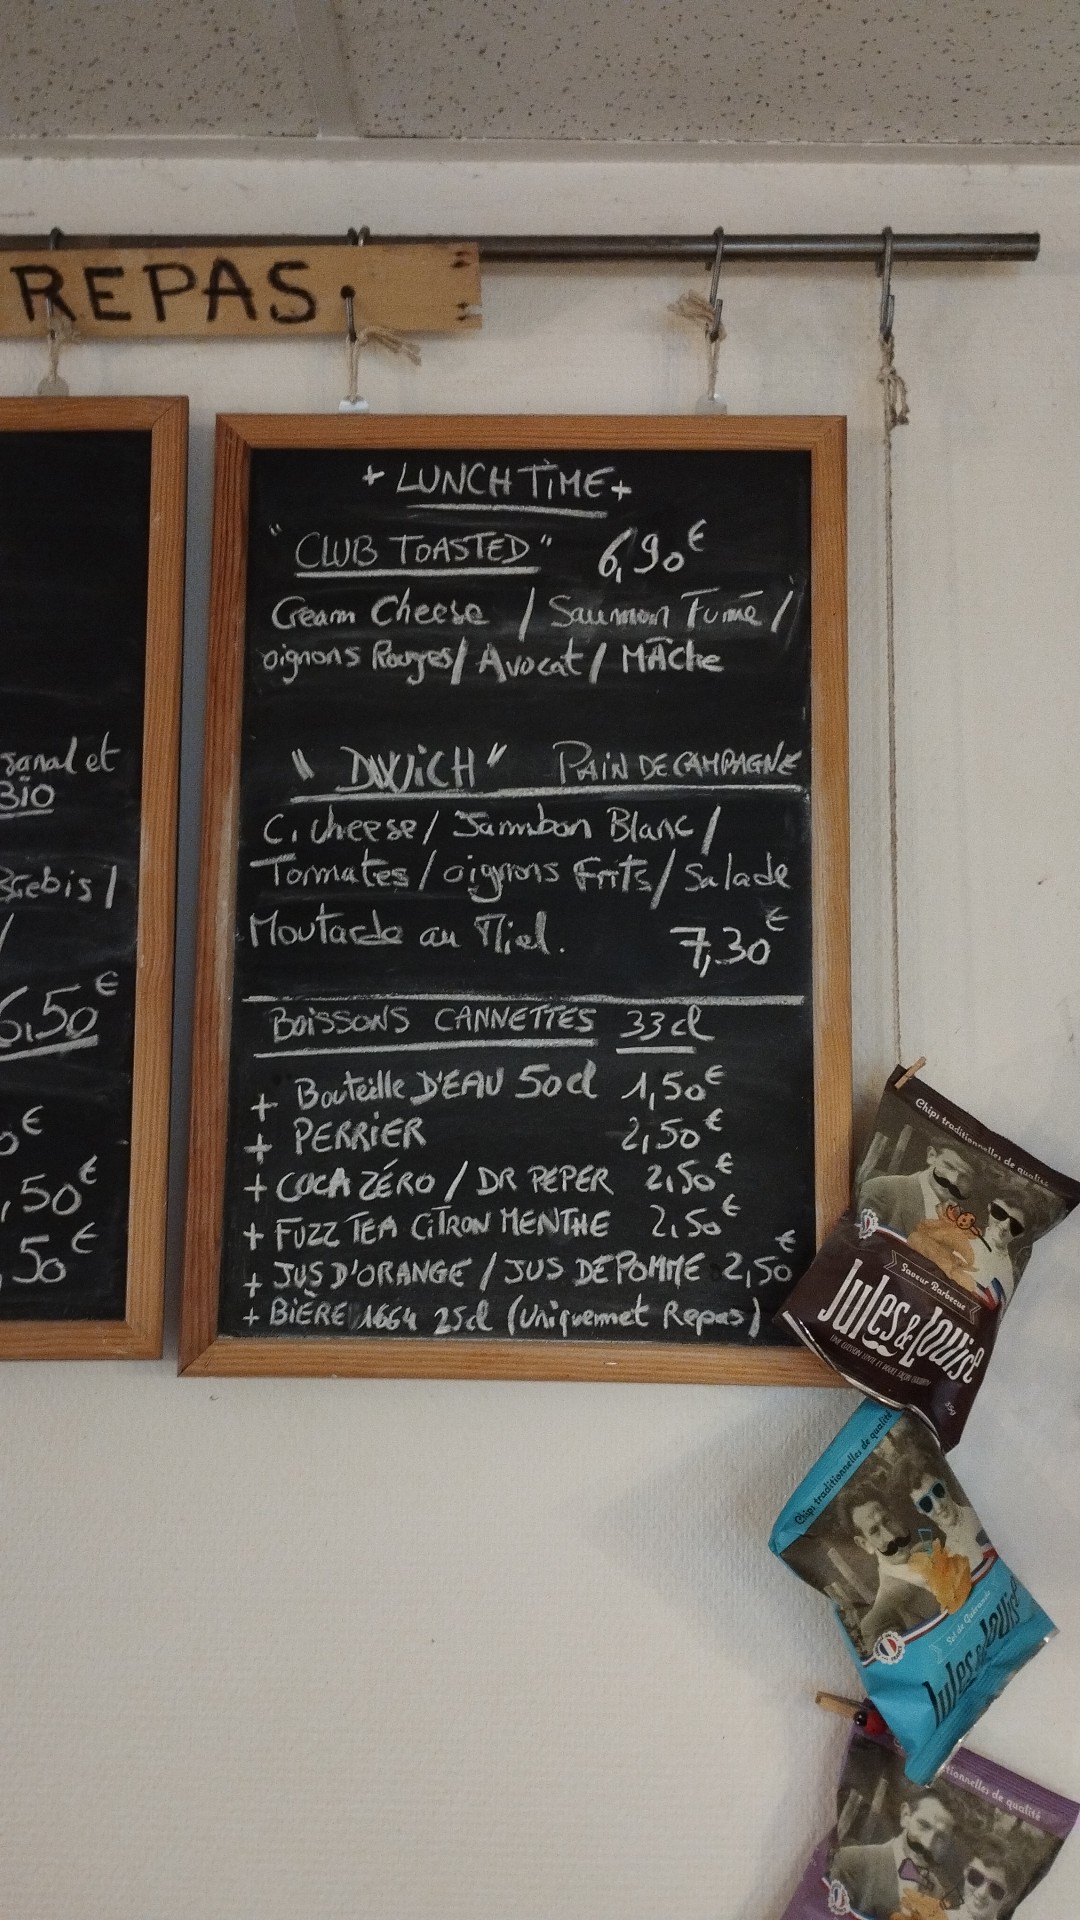 REPAS.
sanal et
Bio
Brebis /
/
6,50€
€
,50€
,50€
+ LUNCH TIME +
"CLUB TOASTED" 6,90€
Cream Cheese / Saumon Fumé /
oignons Rouges / Avocat / MÂche
"DWICH" PAIN DE CAMPAGNE
C. cheese / Jambon Blanc /
Tomates / oignons Frits / Salade
Moutarde au Miel. 7,30€
BOISSONS CANNETTES 33cl
+ Bouteille D'EAU 50cl 1,50€
+ PERRIER 2,50€
+ COCA ZÉRO / DR PEPER 2,50€
+ FUZZ TEA CITRON MENTHE 2,50€
+ JUS D'ORANGE / JUS DE POMME 2,50€
+ BIÈRE 1664 25cl (Uniquemnet Repas)
Chips traditionnelles de qualité
Saveur Barbecue
Jules & Louise
45g
Chips traditionnelles de qualité
Sel de Guérande
Jules & Louise
tionnelles de qualité